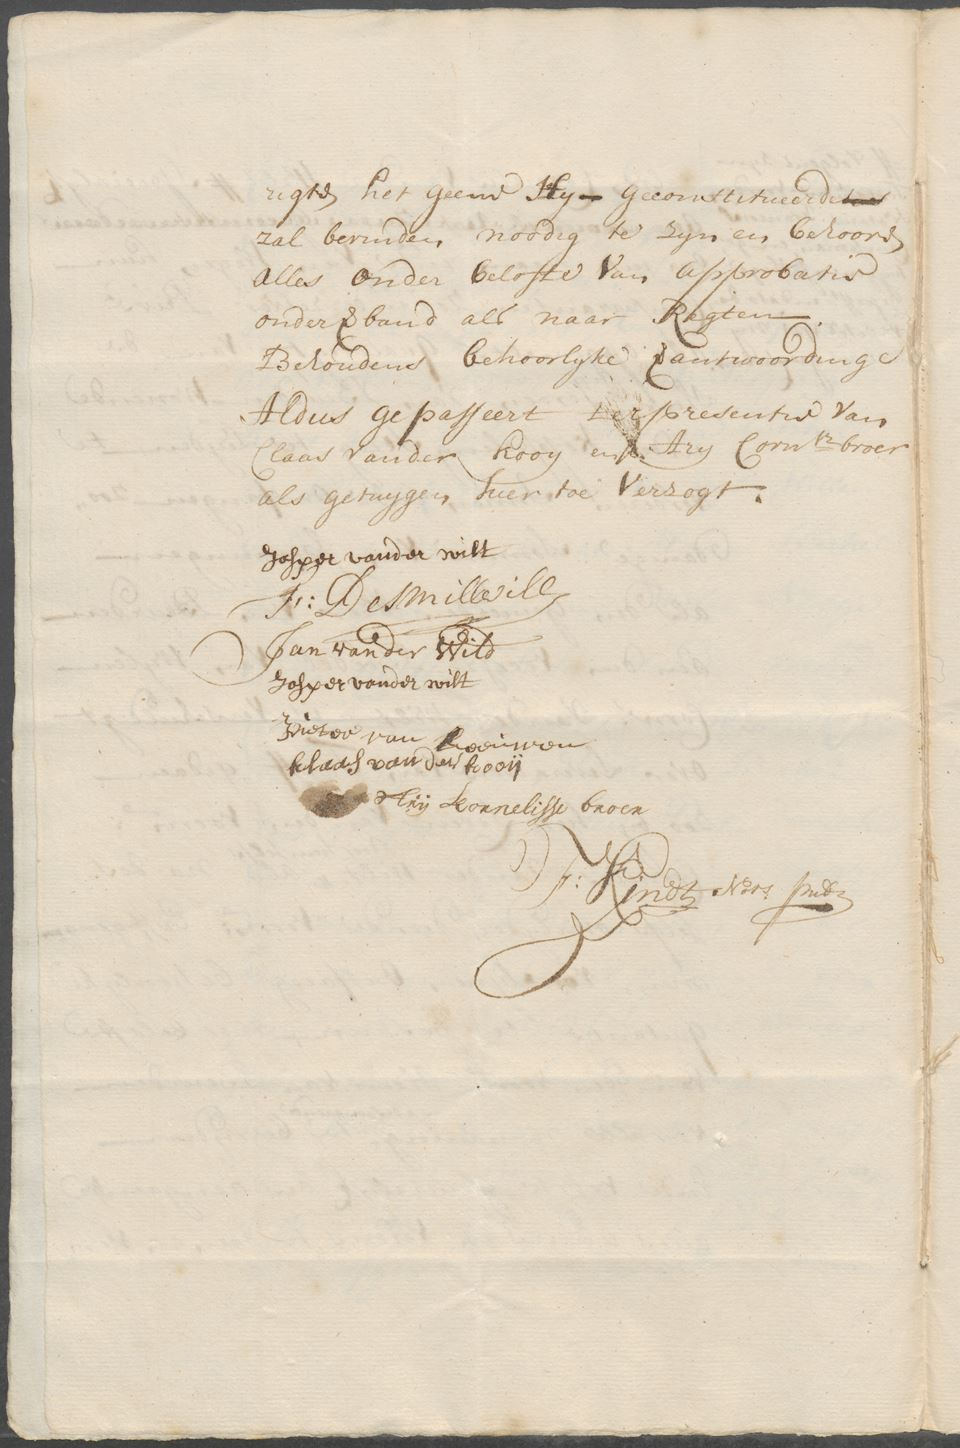 rigten het geene Hy geconstitueerde
zal bevinden noodig te zyn en behooren
alles onder belofte van approbatie
onder verband als naar Regten
Behoudens behoorlyke verantwoordinge
Aldus gepasseert ter presentie van
Claas vander Kooy en Ary Cornsz broer
als getuygen hier toe verzogt.
Jasper vander wilt
F: Desmillevill
Jan vander Wild
Jasper vander wilt
Pieter van Leeuwen
klaas van der kooij
Arij kornelisse broer
F: Kindt Nots. publ